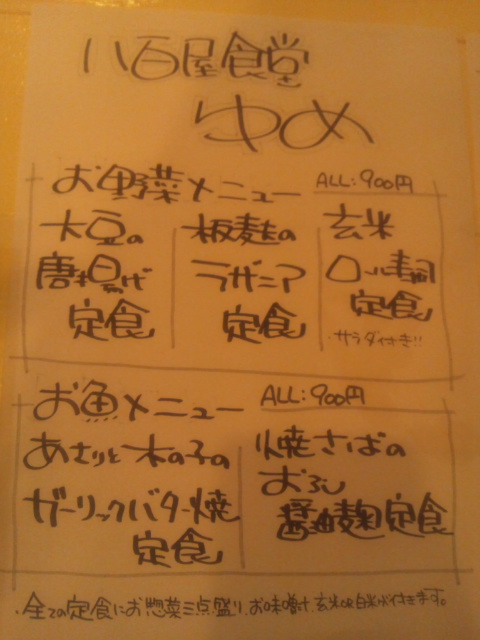 八百屋食堂
ゆめ
お野菜メニュー ALL:900円
大豆の
唐揚げ
定食
板麩の
ラザニア
定食
玄米
ロール寿司
定食
・サラダ付き!!
お魚メニュー ALL:900円
あさりと木の子の
ガーリックバター焼
定食
焼さばの
おろし
醤油麹定食
・全ての定食にお惣菜三点盛り、お味噌汁、玄米or白米が付きます。